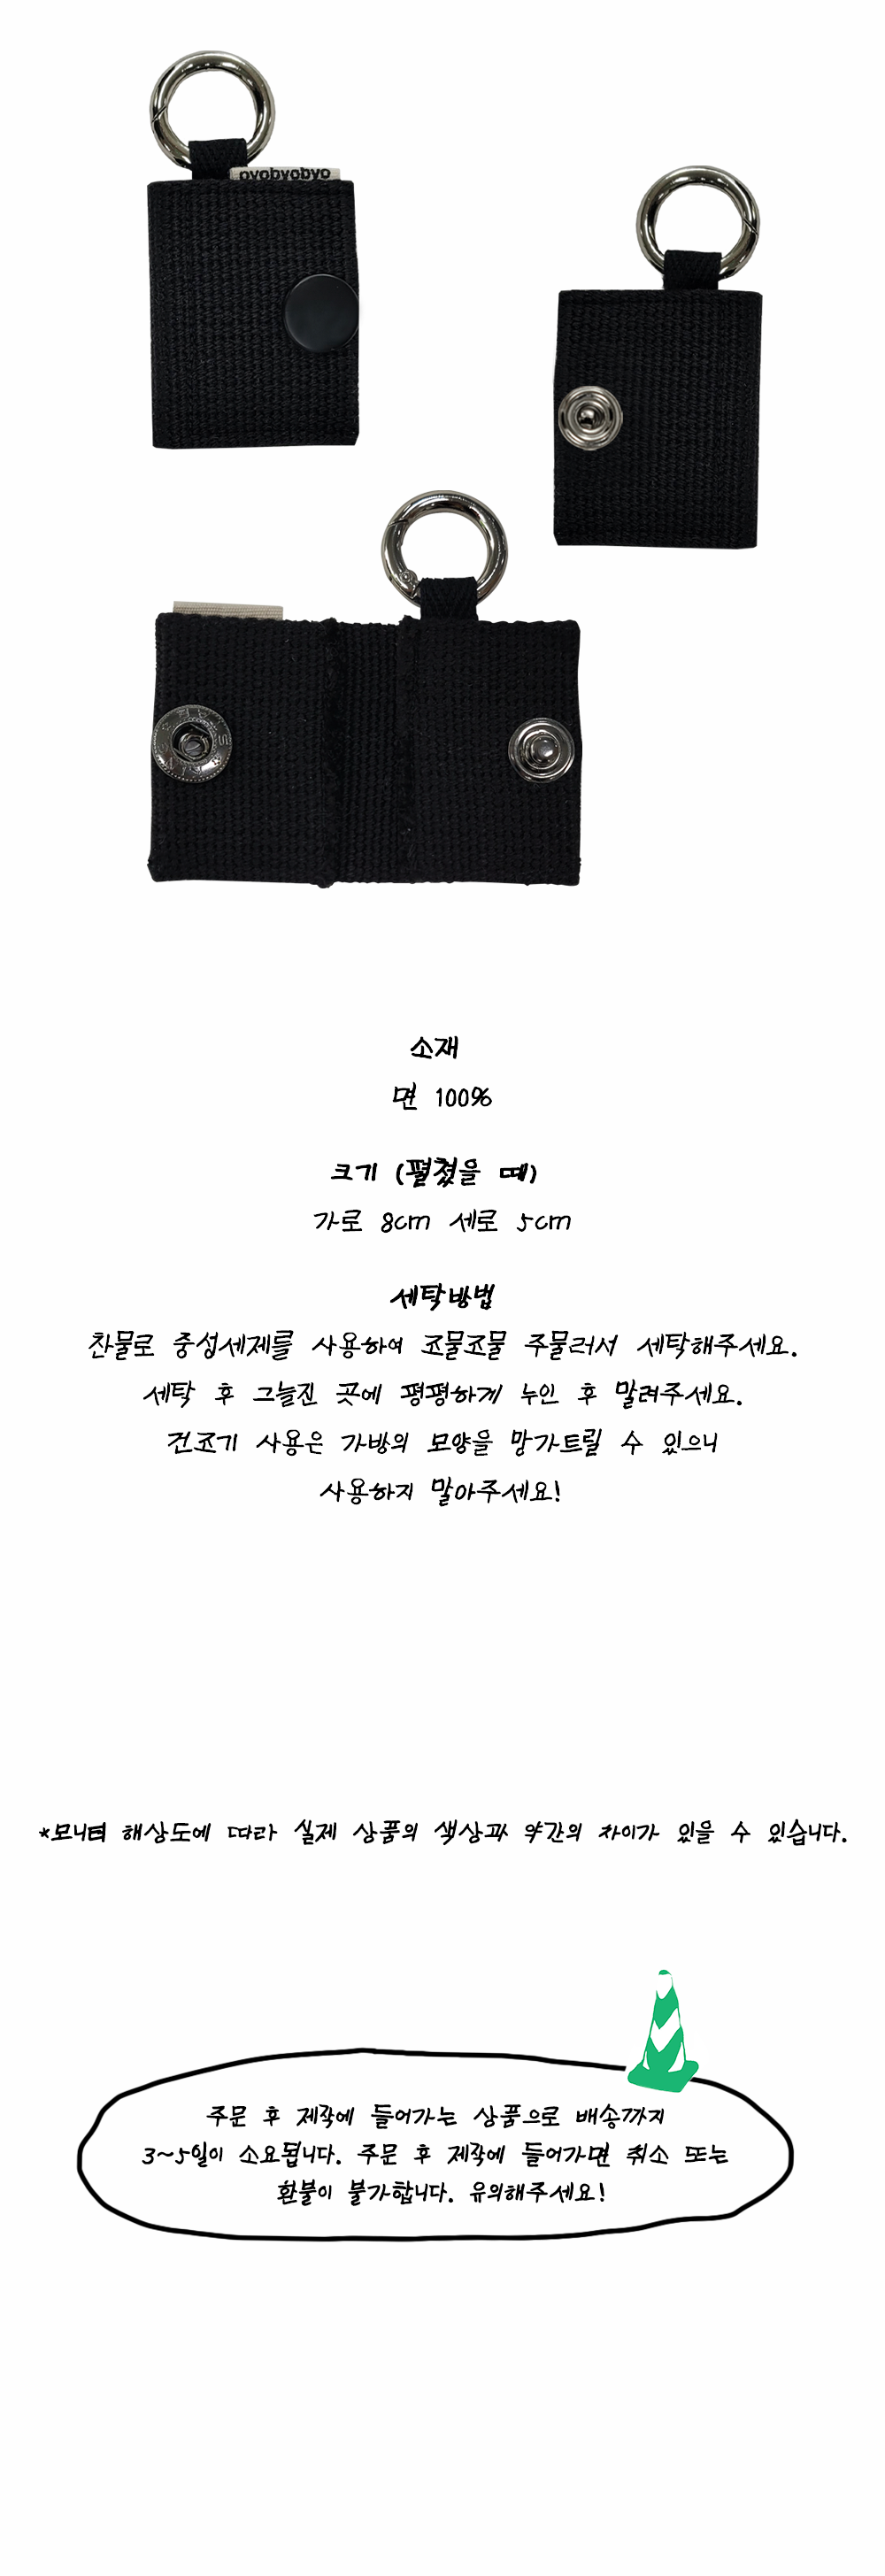 oyobyobyo
소재
면 100%
크기 (펼쳤을 때)
가로 8cm 세로 5cm
세탁방법
찬물로 중성세제를 사용하여 조물조물 주물러서 세탁해주세요.
세탁 후 그늘진 곳에 평평하게 누인 후 말려주세요.
건조기 사용은 가방의 모양을 망가트릴 수 있으니
사용하지 말아주세요!
*모니터 해상도에 따라 실제 상품의 색상과 약간의 차이가 있을 수 있습니다.
주문 후 제작에 들어가는 상품으로 배송까지
3~5일이 소요됩니다. 주문 후 제작에 들어가면 취소 또는
환불이 불가합니다. 유의해주세요!